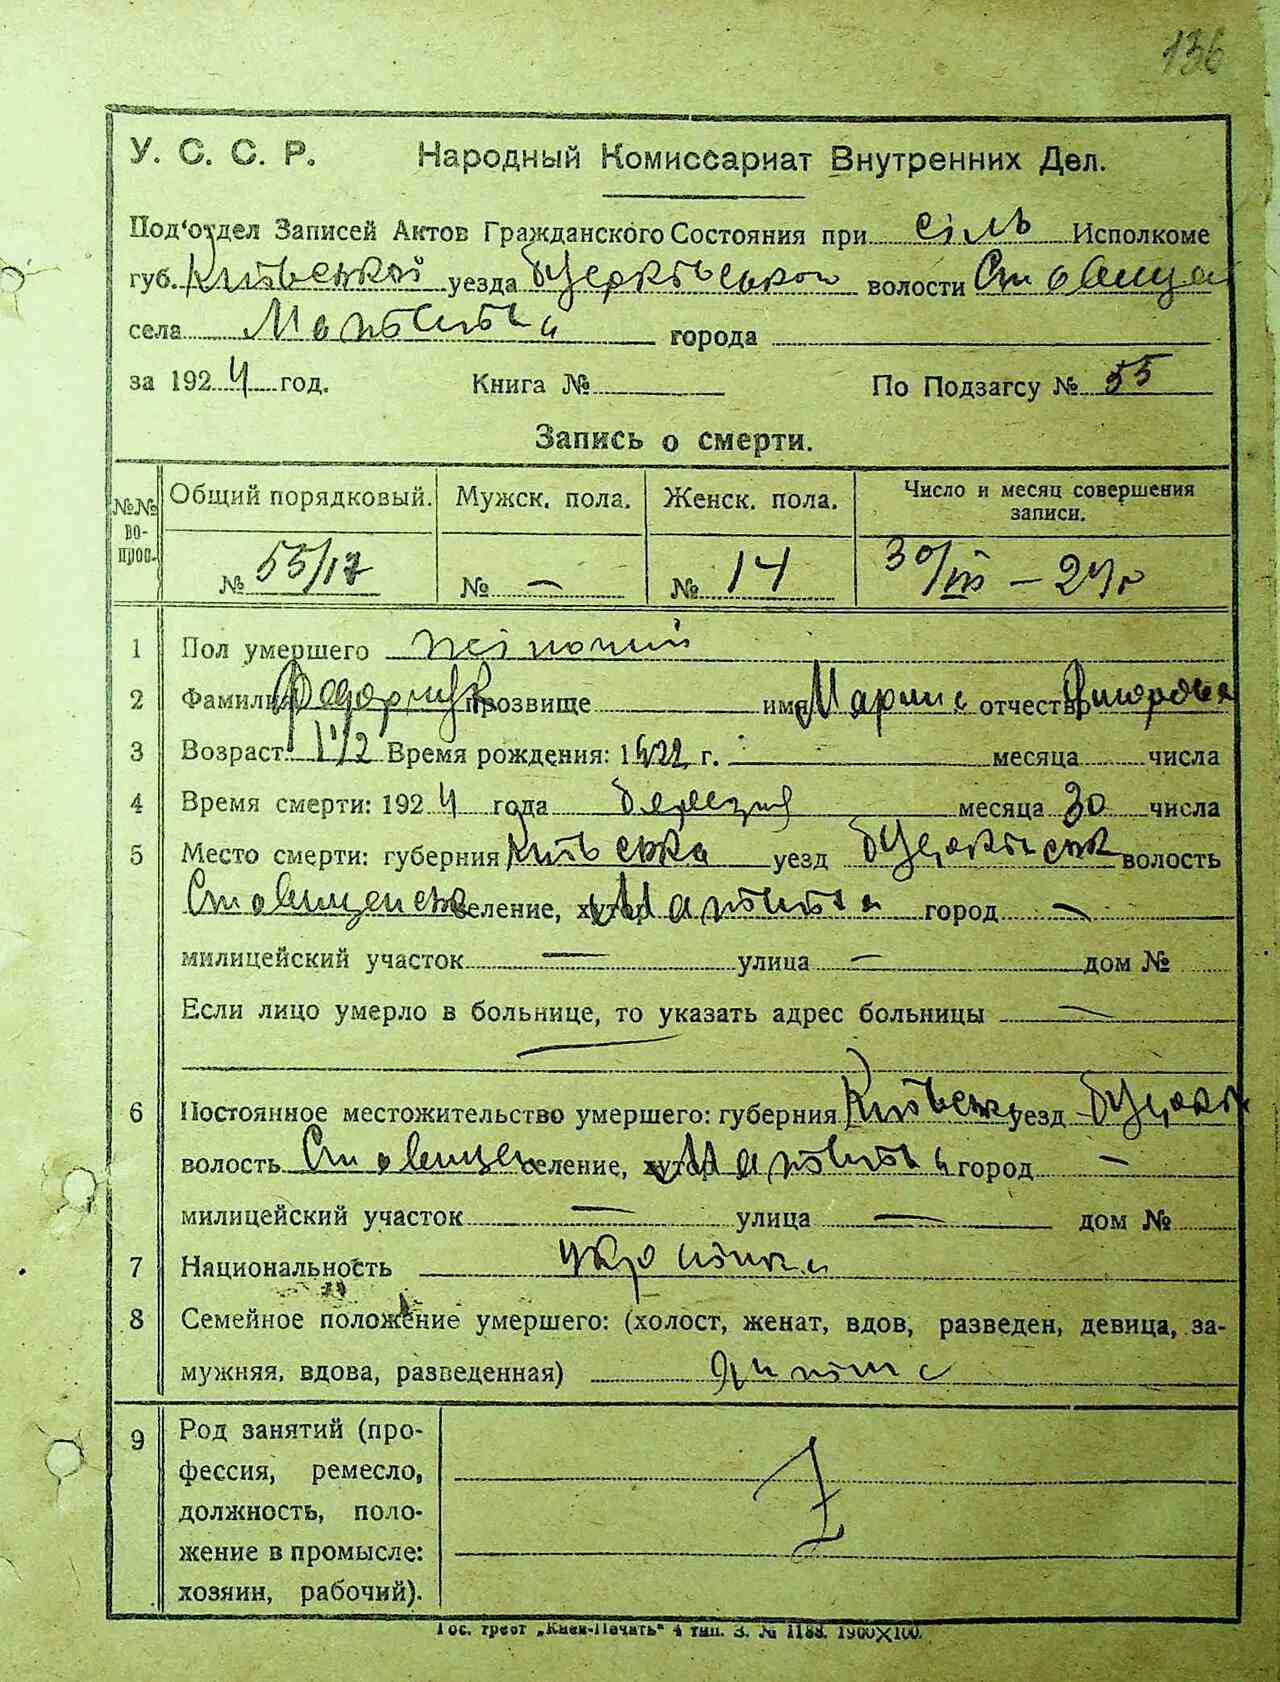 136
У. С. С. Р. Народный Комиссариат Внутренних Дел.
Под'отдел Записей Актов Гражданского Состояния при сіль Исполкоме
губ. Київської уезда Бцерківської волости Ставища
села города
за 1924 год. Книга № По Подзагсу № 55
Запись о смерти.
№№ во- прос. Общий порядковый. Мужск. пола. Женск. пола. Число и месяц совершения записи.
№ 55/17 № — № 14 30/III – 24 г
1 Пол умершего жіночий
2 Фамилия прозвище имя отчество
3 Возраст 1 1/2 Время рождения: 1922 г. месяца числа
4 Время смерти: 1924 года березня месяца 30 числа
5 Место смерти: губерния Київська уезд Бцерківськ волость
Ставищенськ селение, хутор город —
милицейский участок — улица — дом №
Если лицо умерло в больнице, то указать адрес больницы —
6 Постоянное местожительство умершего: губерния Київськ уезд Бцерків
волость Ставищен селение, хутор город —
милицейский участок — улица — дом №
7 Национальность українка
8 Семейное положение умершего: (холост, женат, вдов, разведен, девица, за-
мужняя, вдова, разведенная)
9 Род занятий (про-
фессия, ремесло,
должность, поло-
жение в промысле:
хозяин, рабочий).
Гос. трест „Киев-Печать" 4 тип. З. № 1188. 1900×100.